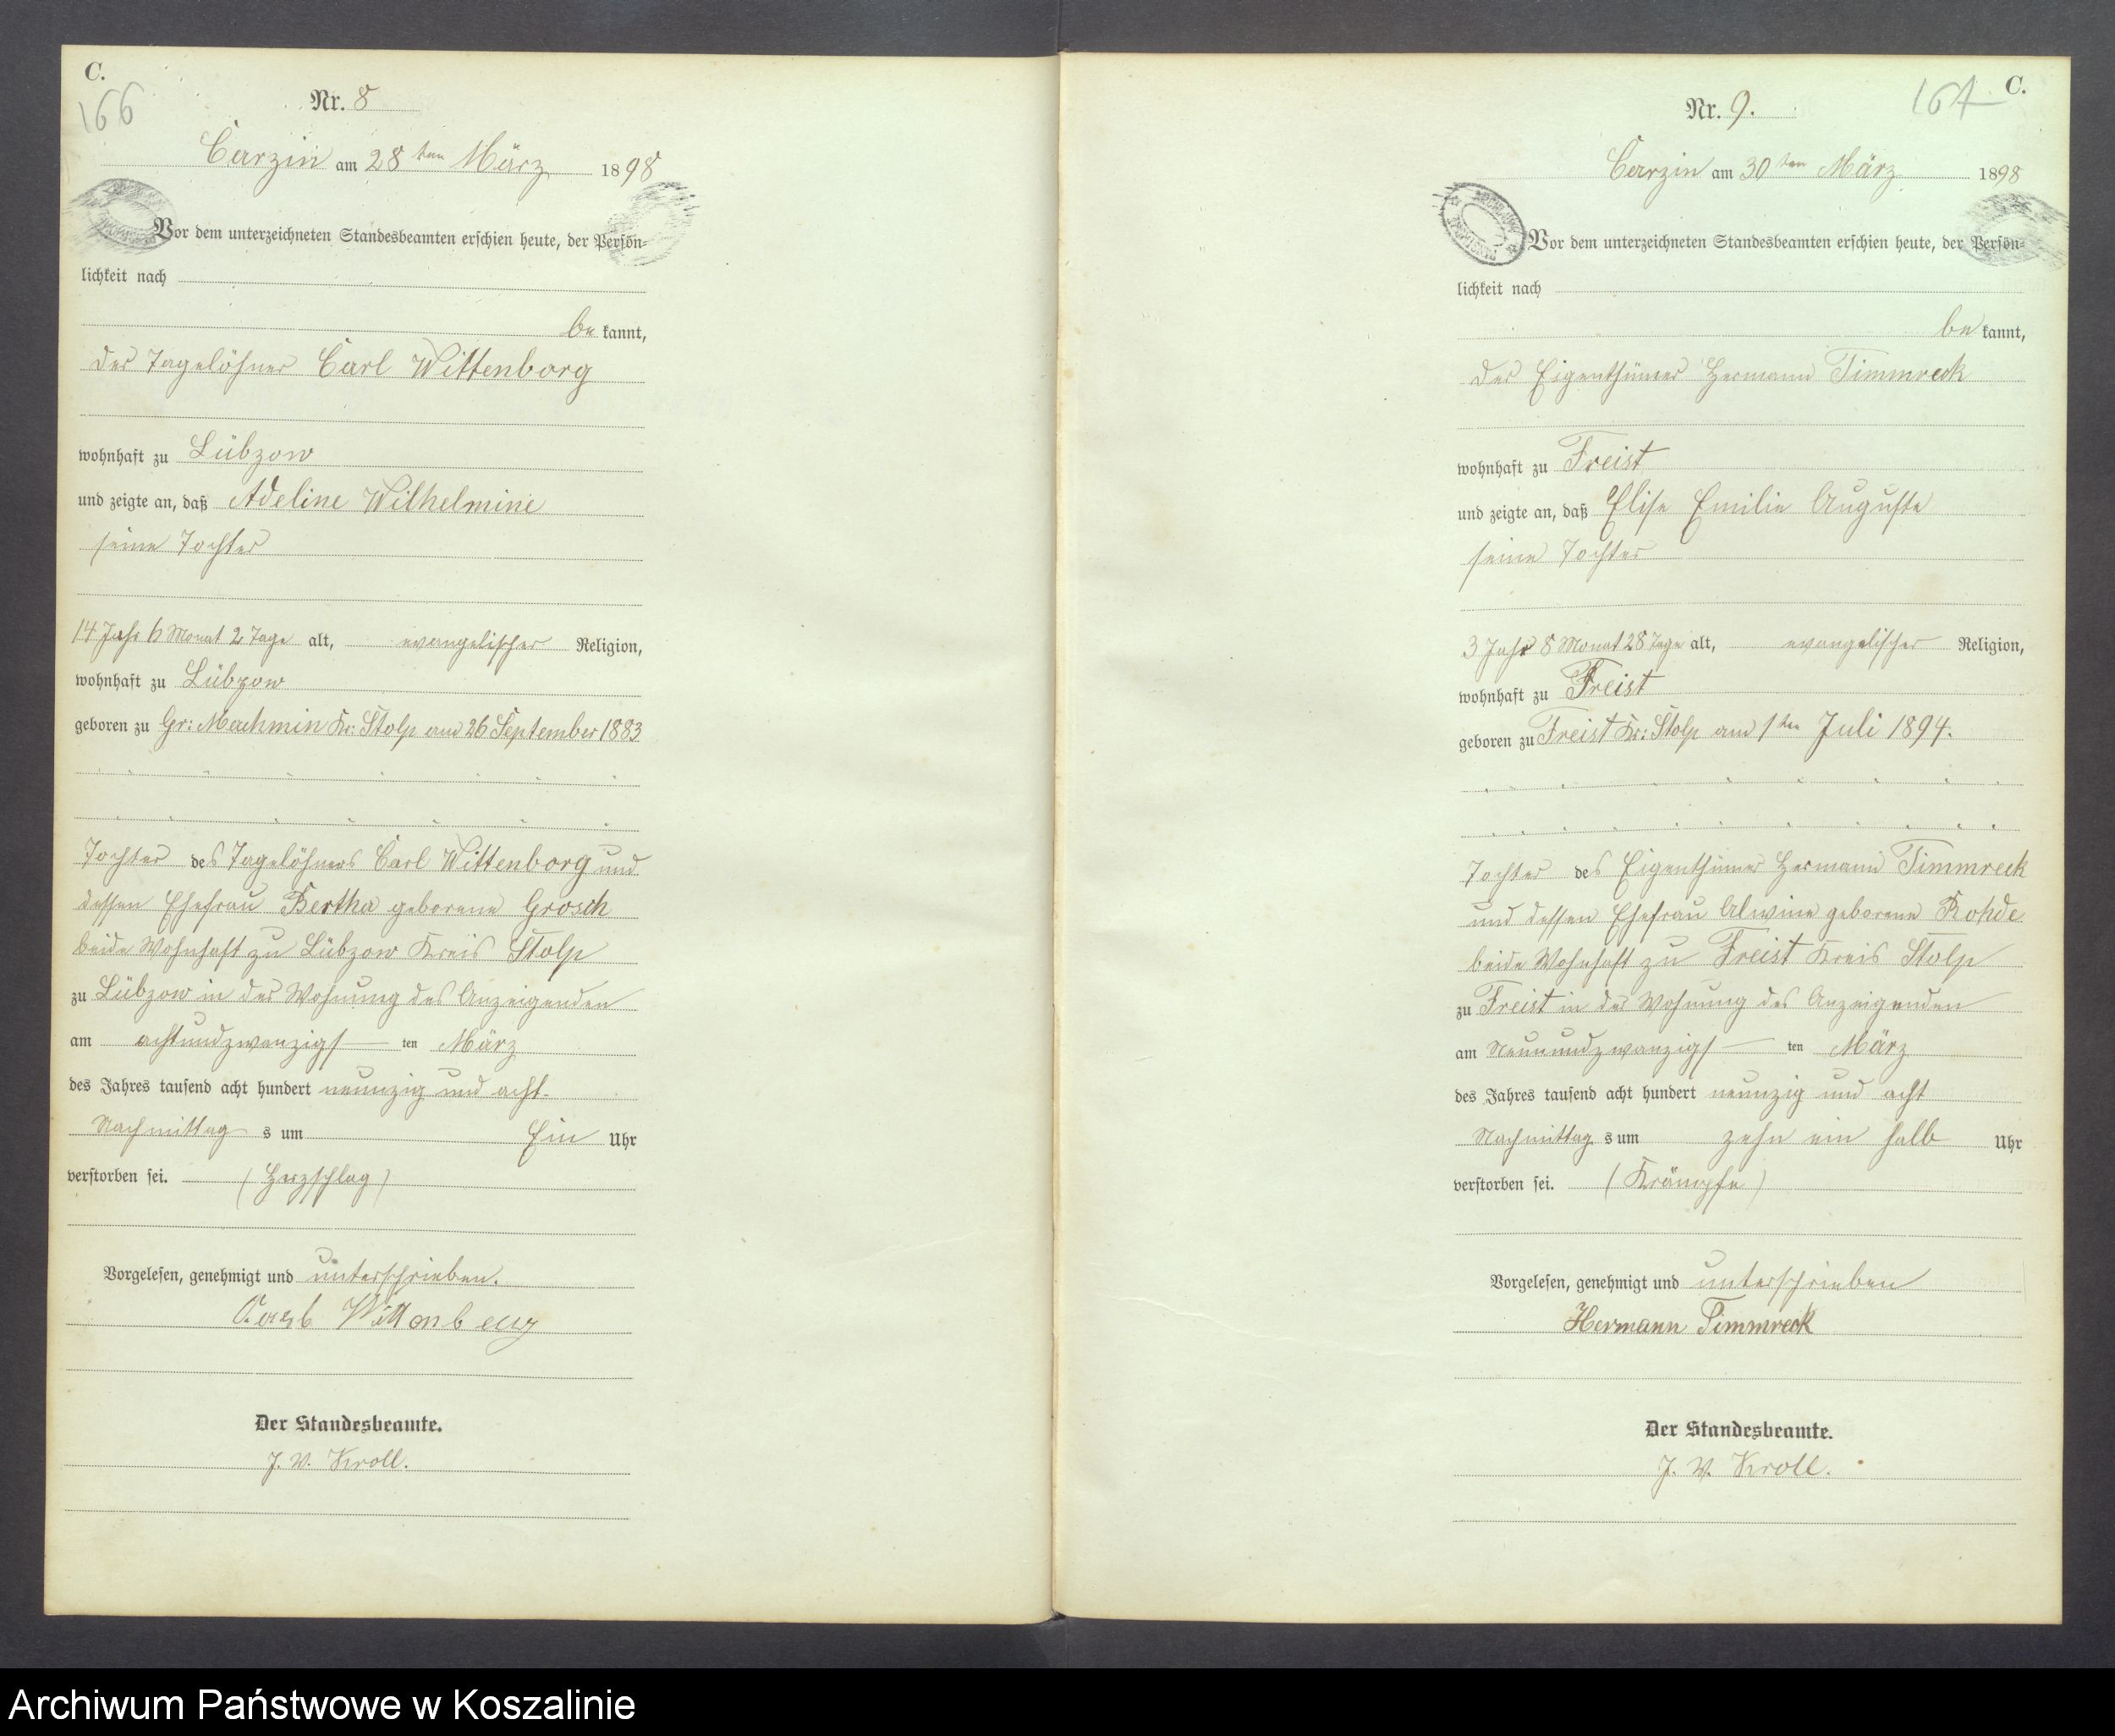 C.
166
Nr. 8
Carzin am 28ten März 1898
Vor dem unterzeichneten Standesbeamten erschien heute, der Persön-
lichkeit nach
be kannt,
der Tagelöhner Carl Wittenborg
wohnhaft zu Lübzow
und zeigte an, daß Adeline Wilhelmine
seine Tochter
14 Jahr 6 Monat 2 Tage alt, evangelischer Religion,
wohnhaft zu Lübzow
geboren zu Gr: Machmin Kr: Stolp am 26 September 1883
Tochter des Tagelöhners Carl Wittenborg und
dessen Ehefrau Bertha geborene Grosch
beide Wohnhaft zu Lübzow Kreis Stolp
zu Lübzow in der Wohnung des Anzeigenden
am achtundzwanzigs ten März
des Jahres tausend acht hundert neunzig und acht
Nachmittag s um Ein Uhr
verstorben sei. (Herzschlag)
Vorgelesen, genehmigt und unterschrieben.
Der Standesbeamte.
J. V. Kroll.
C.
167
Nr. 9.
Carzin am 30ten März 1898
Vor dem unterzeichneten Standesbeamten erschien heute, der Persön-
lichkeit nach
be kannt,
der Eigenthümer Hermann Timmreck
wohnhaft zu Freist
und zeigte an, daß Elise Emilie Auguste
seine Tochter
3 Jahr 8 Monat 28 Tage alt, evangelischer Religion,
wohnhaft zu Freist
geboren zu Freist Kr: Stolp am 1ten Juli 1894.
Tochter des Eigenthümer Hermann Timmreck
und dessen Ehefrau Alwine geborene Rohde
beide Wohnhaft zu Freist Kreis Stolp
zu Freist in der Wohnung des Anzeigenden
am Neunundzwanzigs ten März
des Jahres tausend acht hundert neunzig und acht
Nachmittag s um zehn ein halb Uhr
verstorben sei. (Krämpfe)
Vorgelesen, genehmigt und unterschrieben
Hermann Timmreck
Der Standesbeamte.
J. V. Kroll.
Archiwum Państwowe w Koszalinie